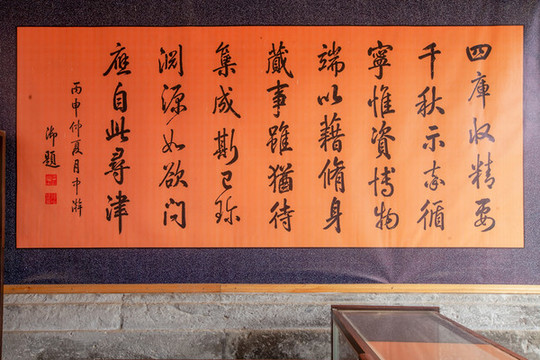 四庫收精要
千秋示率循
寧惟資博物
端以藉脩身
蕆事雖猶待
集成斯已珍
淵源如欲問
應自此尋津
丙申仲夏月中澣
御題